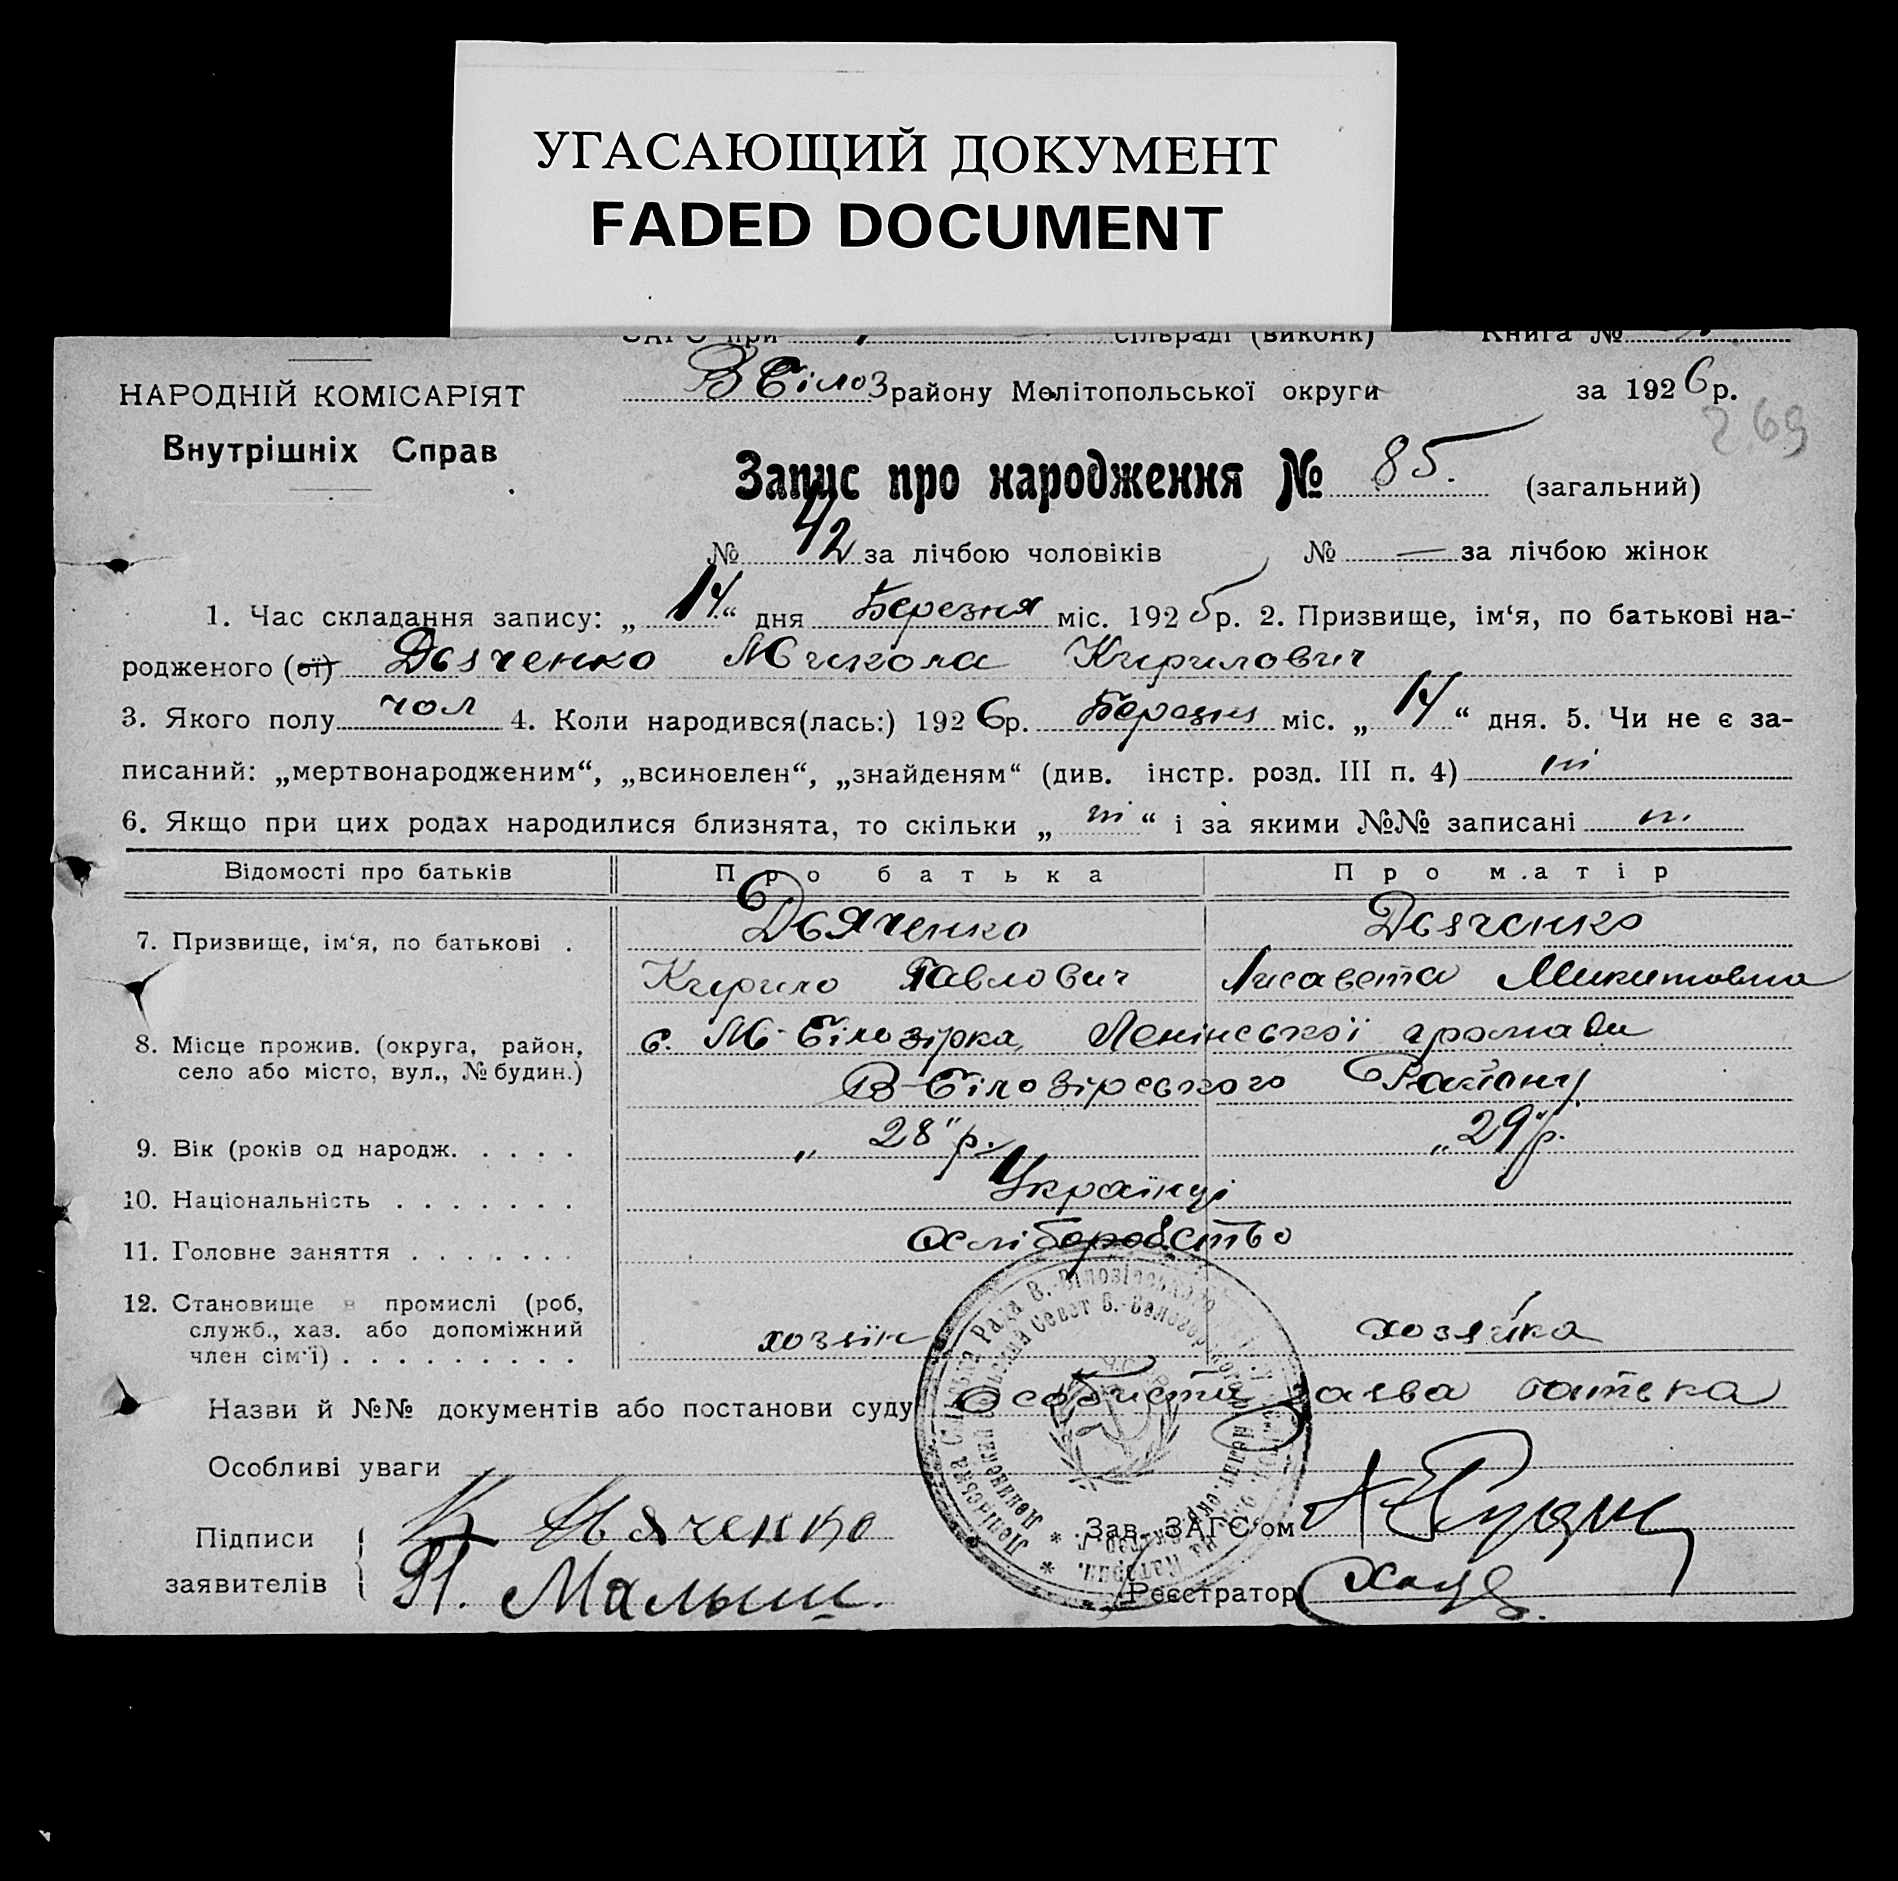 УГАСАЮЩИЙ ДОКУМЕНТ
FADED DOCUMENT
ЗАГС при сільраді (виконк) Книга №
НАРОДНІЙ КОМІСАРІЯТ
Внутрішніх Справ
В Білоз району Мелітопольської округи за 1926 р.
269
Запис про народження № 85. (загальний)
№ 42 за лічбою чоловіків № — за лічбою жінок
1. Час складання запису: „14“ дня Березня міс. 1926 р. 2. Призвище, ім‘я, по батькові на-
родженого (ої) Дьяченко Микола Кирилович
3. Якого полу чол 4. Коли народився(лась:) 1926р. Березня міс. „14“ дня. 5. Чи не є за-
писаний: „мертвонародженим“, „всиновлен“, „знайденям“ (див. інстр. розд. III п. 4) ні
6. Якщо при цих родах народилися близнята, то скільки „ні“ і за якими №№ записані ні
Відомості про батьків Про батька Про матір
7. Призвище, ім‘я, по батькові . Дьяченко Дьяченко
Кирило Павлович Лисавета Микитовна
8. Місце прожив. (округа, район, с. М-Білозірка, Ленінської громади
село або місто, вул., № будин.) В-Білозірського Району
9. Вік (років од народж. . . . . „28" р. „29" р.
10. Національність . . . . . . . Українці
11. Головне заняття . . . . . . . Хліборобство
12. Становище в промислі (роб,
служб., хаз. або допоміжний хозяїн хозяйка
член сім‘ї) . . . . . . . . . .
Назви й №№ документів або постанови суду Особиста заява батька
Особливі уваги
Підписи К Дьяченко Зав. ЗАГС‘ом
заявителів П. Малыш. Реєстратор